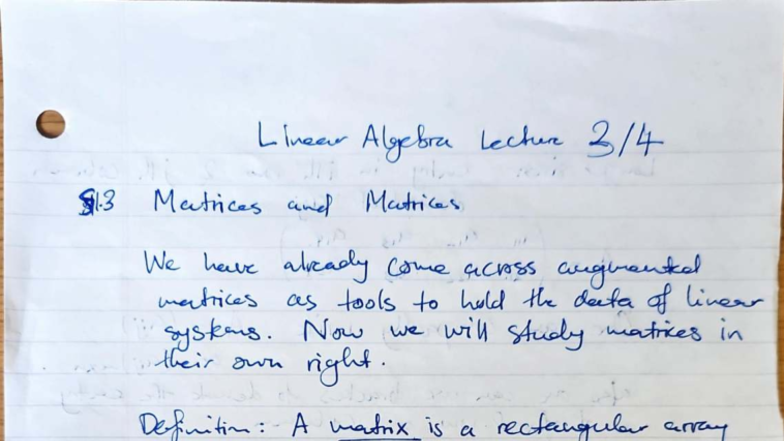 Linear Algebra Lecture 3/4
§1.3 Matrices and Matrices
We have already come across augmented
matrices as tools to hold the data of linear
systems. Now we will study matrices in
their own right.
Definition: A matrix is a rectangular array